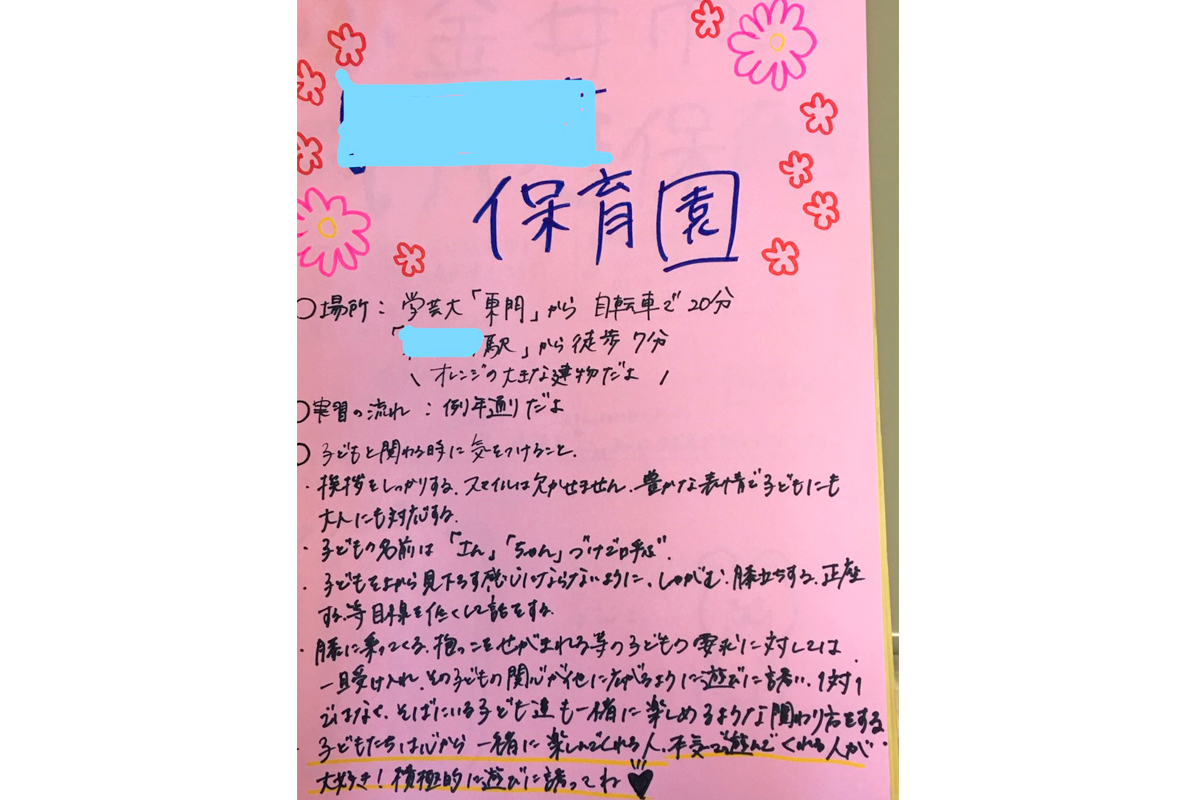 保育園
○場所：学芸大「東門」から 自転車で20分
「駅」から徒歩7分
\ オレンジの大きな建物だよ /
○実習の流れ：例年通りだよ
○子どもと関わる時に気をつけること。
・挨拶をしっかりする。スマイルは欠かせません。豊かな表情で子どもにも
大人にも対応する。
・子どもの名前は「さん」「ちゃん」づけで呼ぶ。
・子どもを上から見下ろす感じにならないように、しゃがむ、膝立ちする、正座
する等目線を低くして話をする。
・膝に乗ってくる、抱っこをせがまれる等の子どもの要求に対しては、
一旦受け入れ、その子どもの関心が他に広がるように遊びに誘い、1対1
ではなく、そばにいる子ども達も一緒に楽しめるような関わり方をする
・子どもたちは心から一緒に楽しんでくれる人、本気で遊んでくれる人が
大好き！積極的に遊びに誘ってね♥